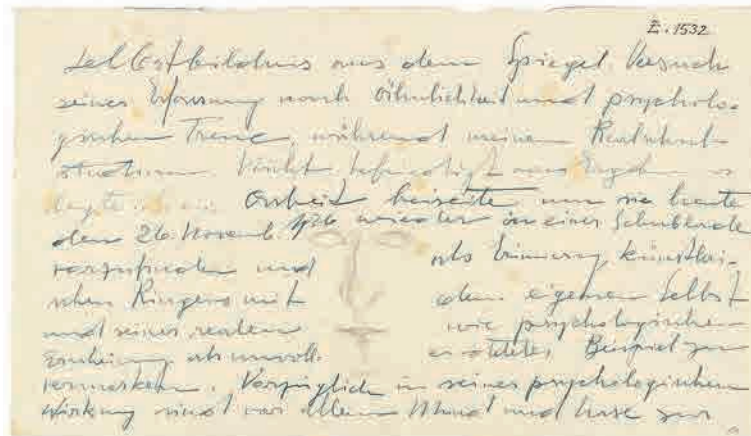 Z. 1532
Selbstbildnis aus dem Spiegel. Versuch
seiner Erfassung nach Ähnlichkeit und psycholo-
gischer Treue, während meiner
studien. Nicht befriedigt vom Ergebnis
legte ich die Arbeit beiseite, um sie heute
den 26. Novemb. 1926 wieder in einer Schublade
vorzufinden und als Erinnerung künstleri-
schen Ringens mit dem eigenen Selbst
und seiner realen wie psychologischen
Erscheinung als unvoll- Beispiel zu
vermerken. Vorzüglich in seiner psychologischen
Wirkung sind vor allem Mund und Nase zur